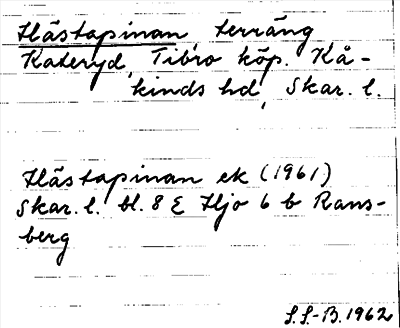 Hästapinan terräng
Kateryd, Tibro köp. Kå-
kinds hd, Skar. l.
Hästapinan ek (1961)
Skar. l. bl. 8 E Hjo 6 b Rans-
berg
S.S-B. 1962